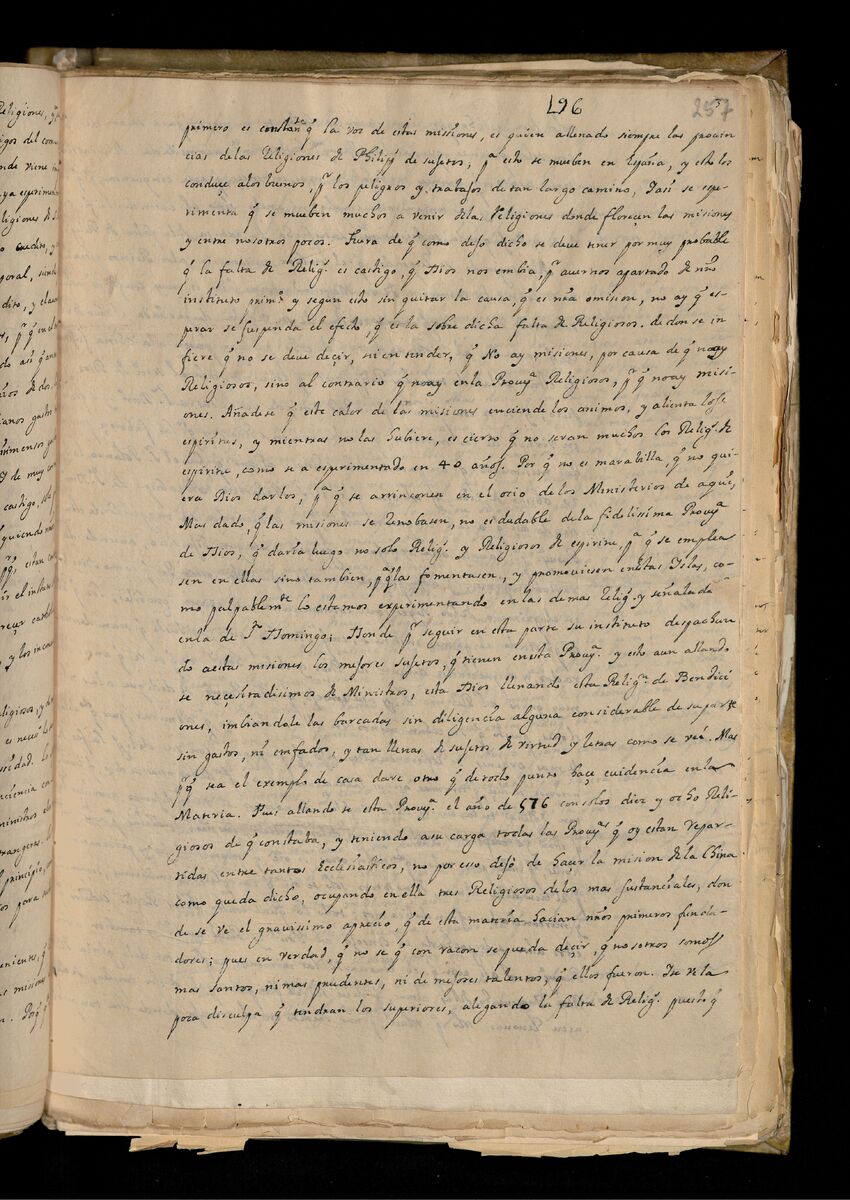 196
257
primero es constante q̃ la vos de estas misiones, es quien allenado siempre las provin
cias de las Religiones de Philip.s de sujetos, pa esto se mueben en España, y esto los
conduçe a los buenos, pr los peligros y trabajos de tan largo camino, Iasi se espe-
rimenta q̃ se mueben muchos a venir de las Religiones donde floreçen las misiones
y entre nosotros pocos. Fuera de q̃ como dejo dicho se deve tener por muy probable
q̃ la falta de Relig.s es castigo, q̃ Dios nos embia, pr avernos apartado de nr̃o
instituto prim.o y segun esto sin quitar la causa, q̃ es nr̃a omision, no ay q̃ es-
perar se suspenda el efecto, q̃ es la sobre dicha falta de Religiosos. de donse in
fiere q̃ no se deve deçir, ni entender, q̃ No ay misiones, por causa de q̃ no ay
Religiosos, sino al contrario q̃ no ay en la Prov.a Religiosos, pr q̃ no ay misi-
ones. Añadese q̃ este calor de las misiones enciende los animos, y alienta los
espiritus, y mientras no las hubiere, es cierto q̃ no seran muchos los Relig.s de
espiritu, como se a esperimentado en 40 años. Por q̃ no es marabilla, q̃ no qui-
era Dios darlos, pa q̃ se arrinconen en el ocio de los Ministerios de aqui,
Mas dado, q̃ las misiones se renobasen, no es dudable de la fidelissima Prov.a
de Dios, q̃ daria luego no solo Relig.s y Religiosos de espiritu, pa q̃ se emplea
sen en ellas sino tambien, pa q̃ las fomentasen, y promoviesen en estas Islas, co-
mo palpablem.te lo estamos experimentando en las demas Relig.s y señalada
en la de S.to Domingo; Donde pr seguir en esta parte su instituto despachan
do a estas misiones los mejores sujetos, q̃ tienen en esta Prov.a y esto aun allando
se neçesitadisimos de Ministros, esta Dios llenando esta Relig.n de Bendici
ones, imbiandole las barcadas sin diligencia alguna considerable de su parte
sin gastos, ni enfados, y tan llenas de sujetos de virtud y letras como se veè. Mas
pr q̃ sea el exemplo de casa dare otro q̃ de todo punto haçe evidencia en la
Materia. Pues allandose esta Prov.a el año de 576 con solos diez y ocho Reli-
giosos de q̃ constaba, y teniendo a su carga todas las Prov.as q̃ oy estan repar-
tidas entre tantos Ecclesiasticos, no por esso dejò de haçer la mision de la China
como queda dicho, ocupando en ella tres Religiosos de los mas sustanciales, don
de se ve el gravissimo aprecio, q̃ de esta materia hacian nr̃os primeros funda-
dores; pues en verdad, q̃ no se q̃ con raçon se pueda deçir, q̃ nosotros somos
mas santos, ni mas prudentes, ni de mejores talentos, q̃ ellos fueron. I se ve la
poca disculpa q̃ tendran los superiores, alegando la falta de Relig.s puesto q̃